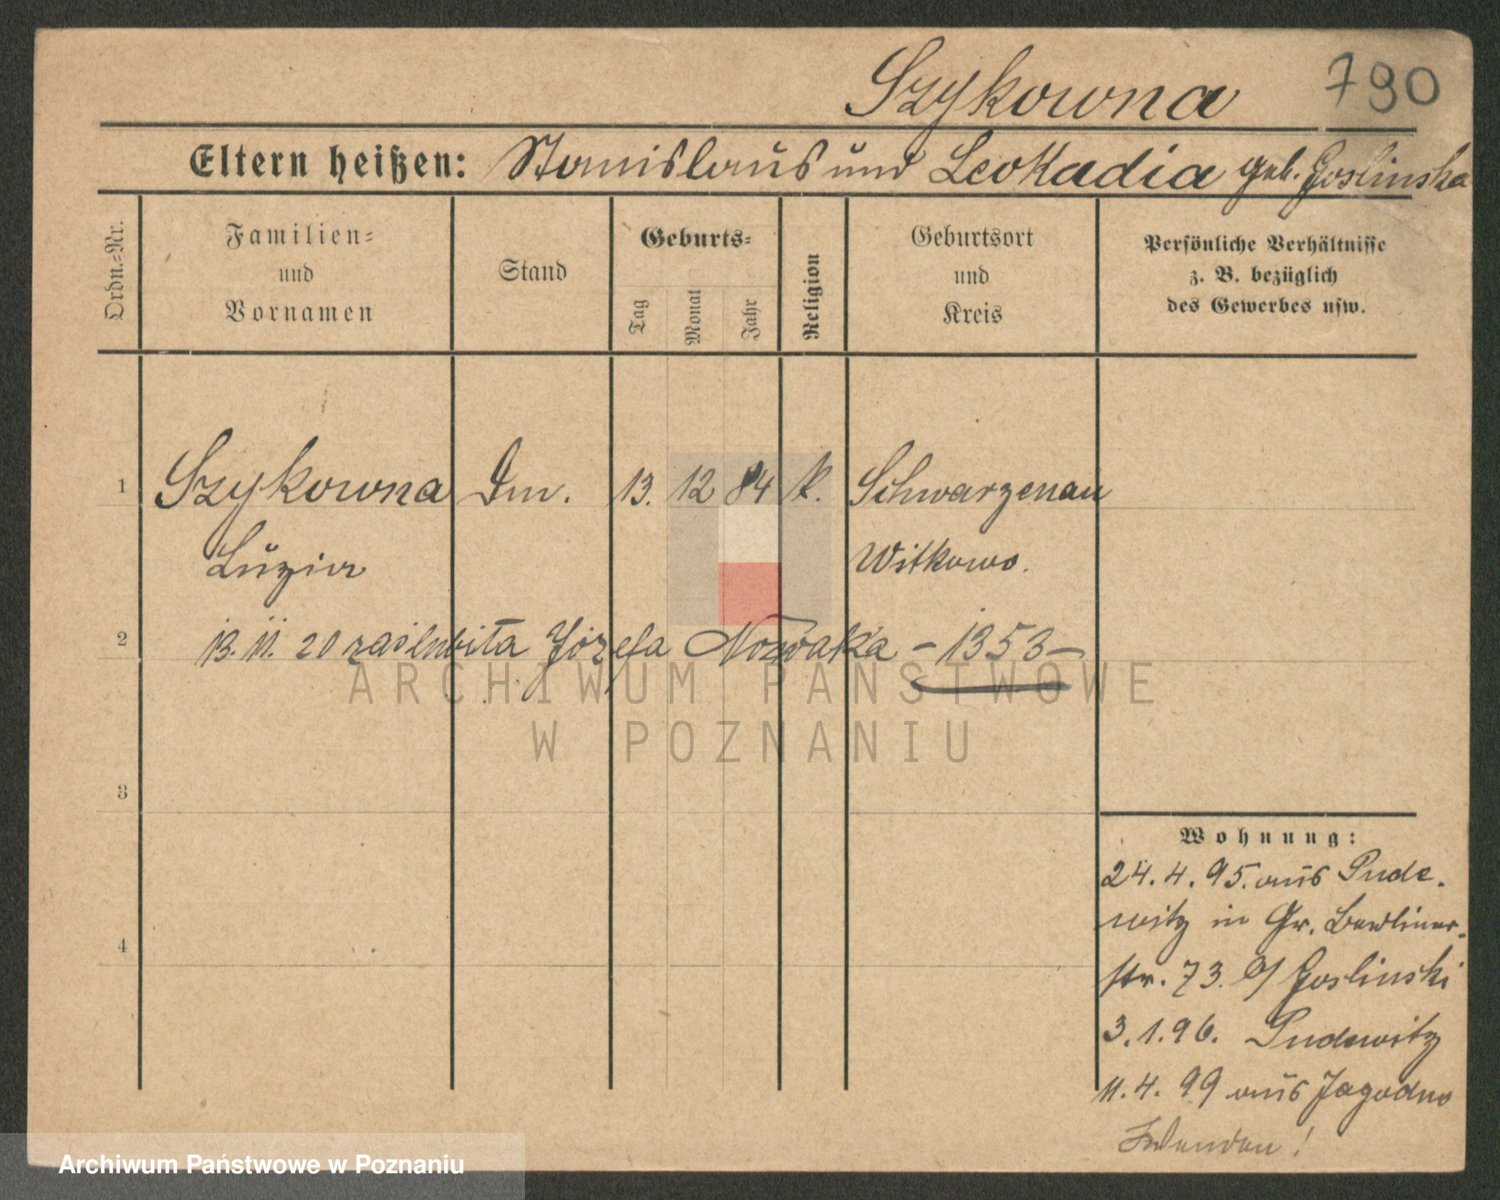 Szykowna 790
Eltern heißen: Stanislaus und Leokadia geb. Goslinska
Ordn.-Nr.
Familien-
und
Vornamen
Stand
Geburts-
Tag
Monat
Jahr
Religion
Geburtsort
und
Kreis
Persönliche Verhältnisse
z. B. bezüglich
des Gewerbes usw.
1 Szykowna 13. 12 84 k. Schwarzenau
Luzia Witkowo.
2 13. 11. 20 zaślubiła Józefa Nowaka - 1353 -
3
4
Wohnung:
24. 4. 95. aus Pude-
witz in Gr. Berliner-
str. 73. b/ Goslinski
3. 1. 96. Pudewitz
11. 4. 99 aus Jagodno
Wenden!
ARCHIWUM PAŃSTWOWE
W POZNANIU
Archiwum Państwowe w Poznaniu